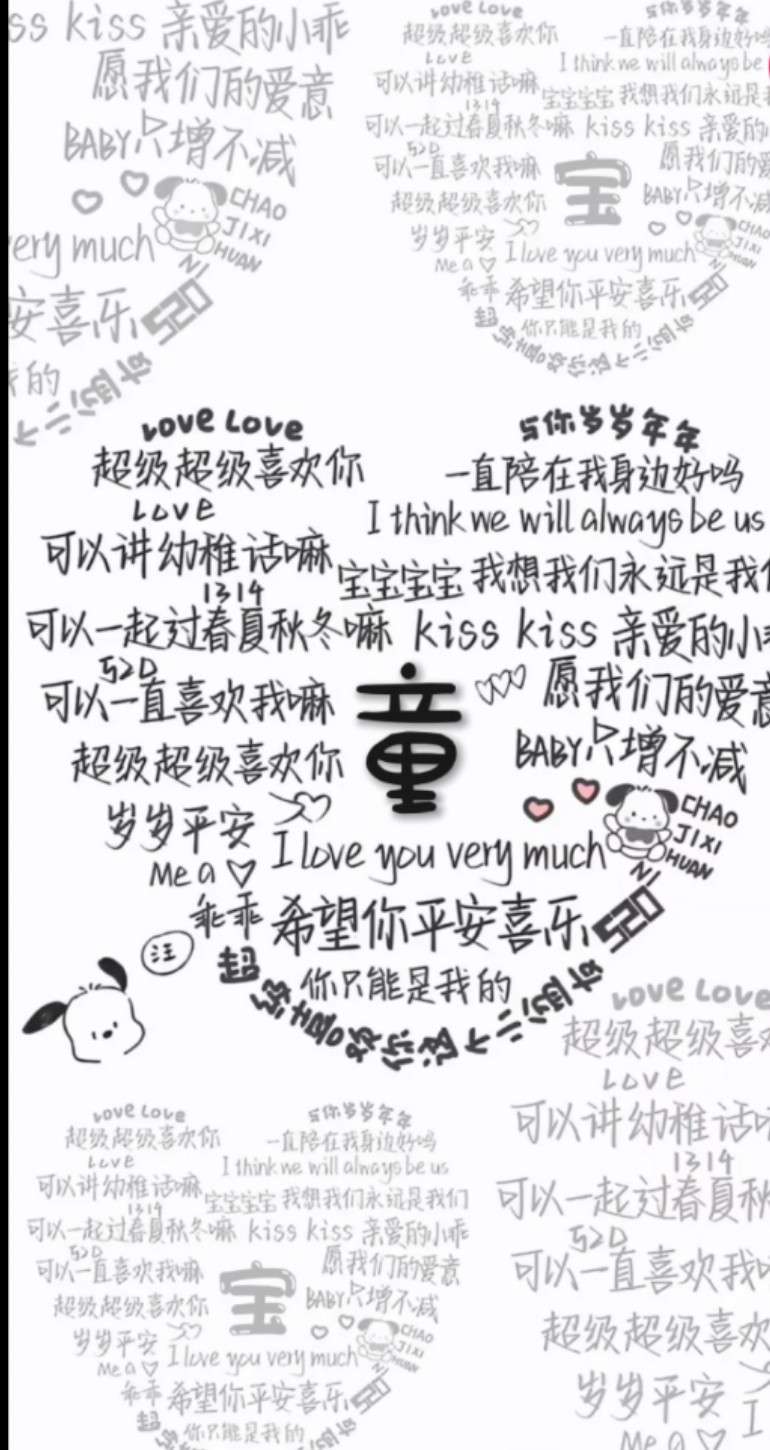 ss kiss 亲爱的小乖
愿我们的爱意
BABY只增不减
CHAO
JI XI
HUAN
NI
ery much
安喜乐
520
的
Love Love
与你岁岁年年
超级超级喜欢你
一直陪在我身边好吗
LOVE
I think we will always be
可以讲幼稚话嘛
宝宝宝宝 我想我们永远是我
1314
可以一起过春夏秋冬嘛 kiss kiss 亲爱的小
520
可以一直喜欢我嘛
宝
愿我们的爱
超级超级喜欢你
BABY只增不减
岁岁平安
CHAO
JI XI
HUAN
NI
I love you very much
Me a
乖乖 希望你平安喜乐
520
你只能是我的
Love Love
与你岁岁年年
超级超级喜欢你
一直陪在我身边好吗
LOVE
I think we will always be us
可以讲幼稚话嘛
宝宝宝宝 我想我们永远是我们
1314
可以一起过春夏秋冬嘛 kiss kiss 亲爱的小
520
可以一直喜欢我嘛
童
愿我们的爱意
超级超级喜欢你
BABY只增不减
岁岁平安
CHAO
JI XI
HUAN
NI
I love you very much
Me a
乖乖 希望你平安喜乐
520
汪
你只能是我的
超级喜欢你这个小
Love Love
超级超级喜欢
LOVE
可以讲幼稚话
1314
可以一起过春夏秋
520
可以一直喜欢我
超级超级喜欢
岁岁平安
I
Me a
Love Love
与你岁岁年年
超级超级喜欢你
一直陪在我身边好吗
LOVE
I think we will always be us
可以讲幼稚话嘛
宝宝宝宝 我想我们永远是我们
1314
可以一起过春夏秋冬嘛 kiss kiss 亲爱的小乖
520
可以一直喜欢我嘛
宝
愿我们的爱意
超级超级喜欢你
BABY只增不减
岁岁平安
CHAO
JI XI
HUAN
NI
I love you very much
Me a
乖乖 希望你平安喜乐
520
超
你只能是我的